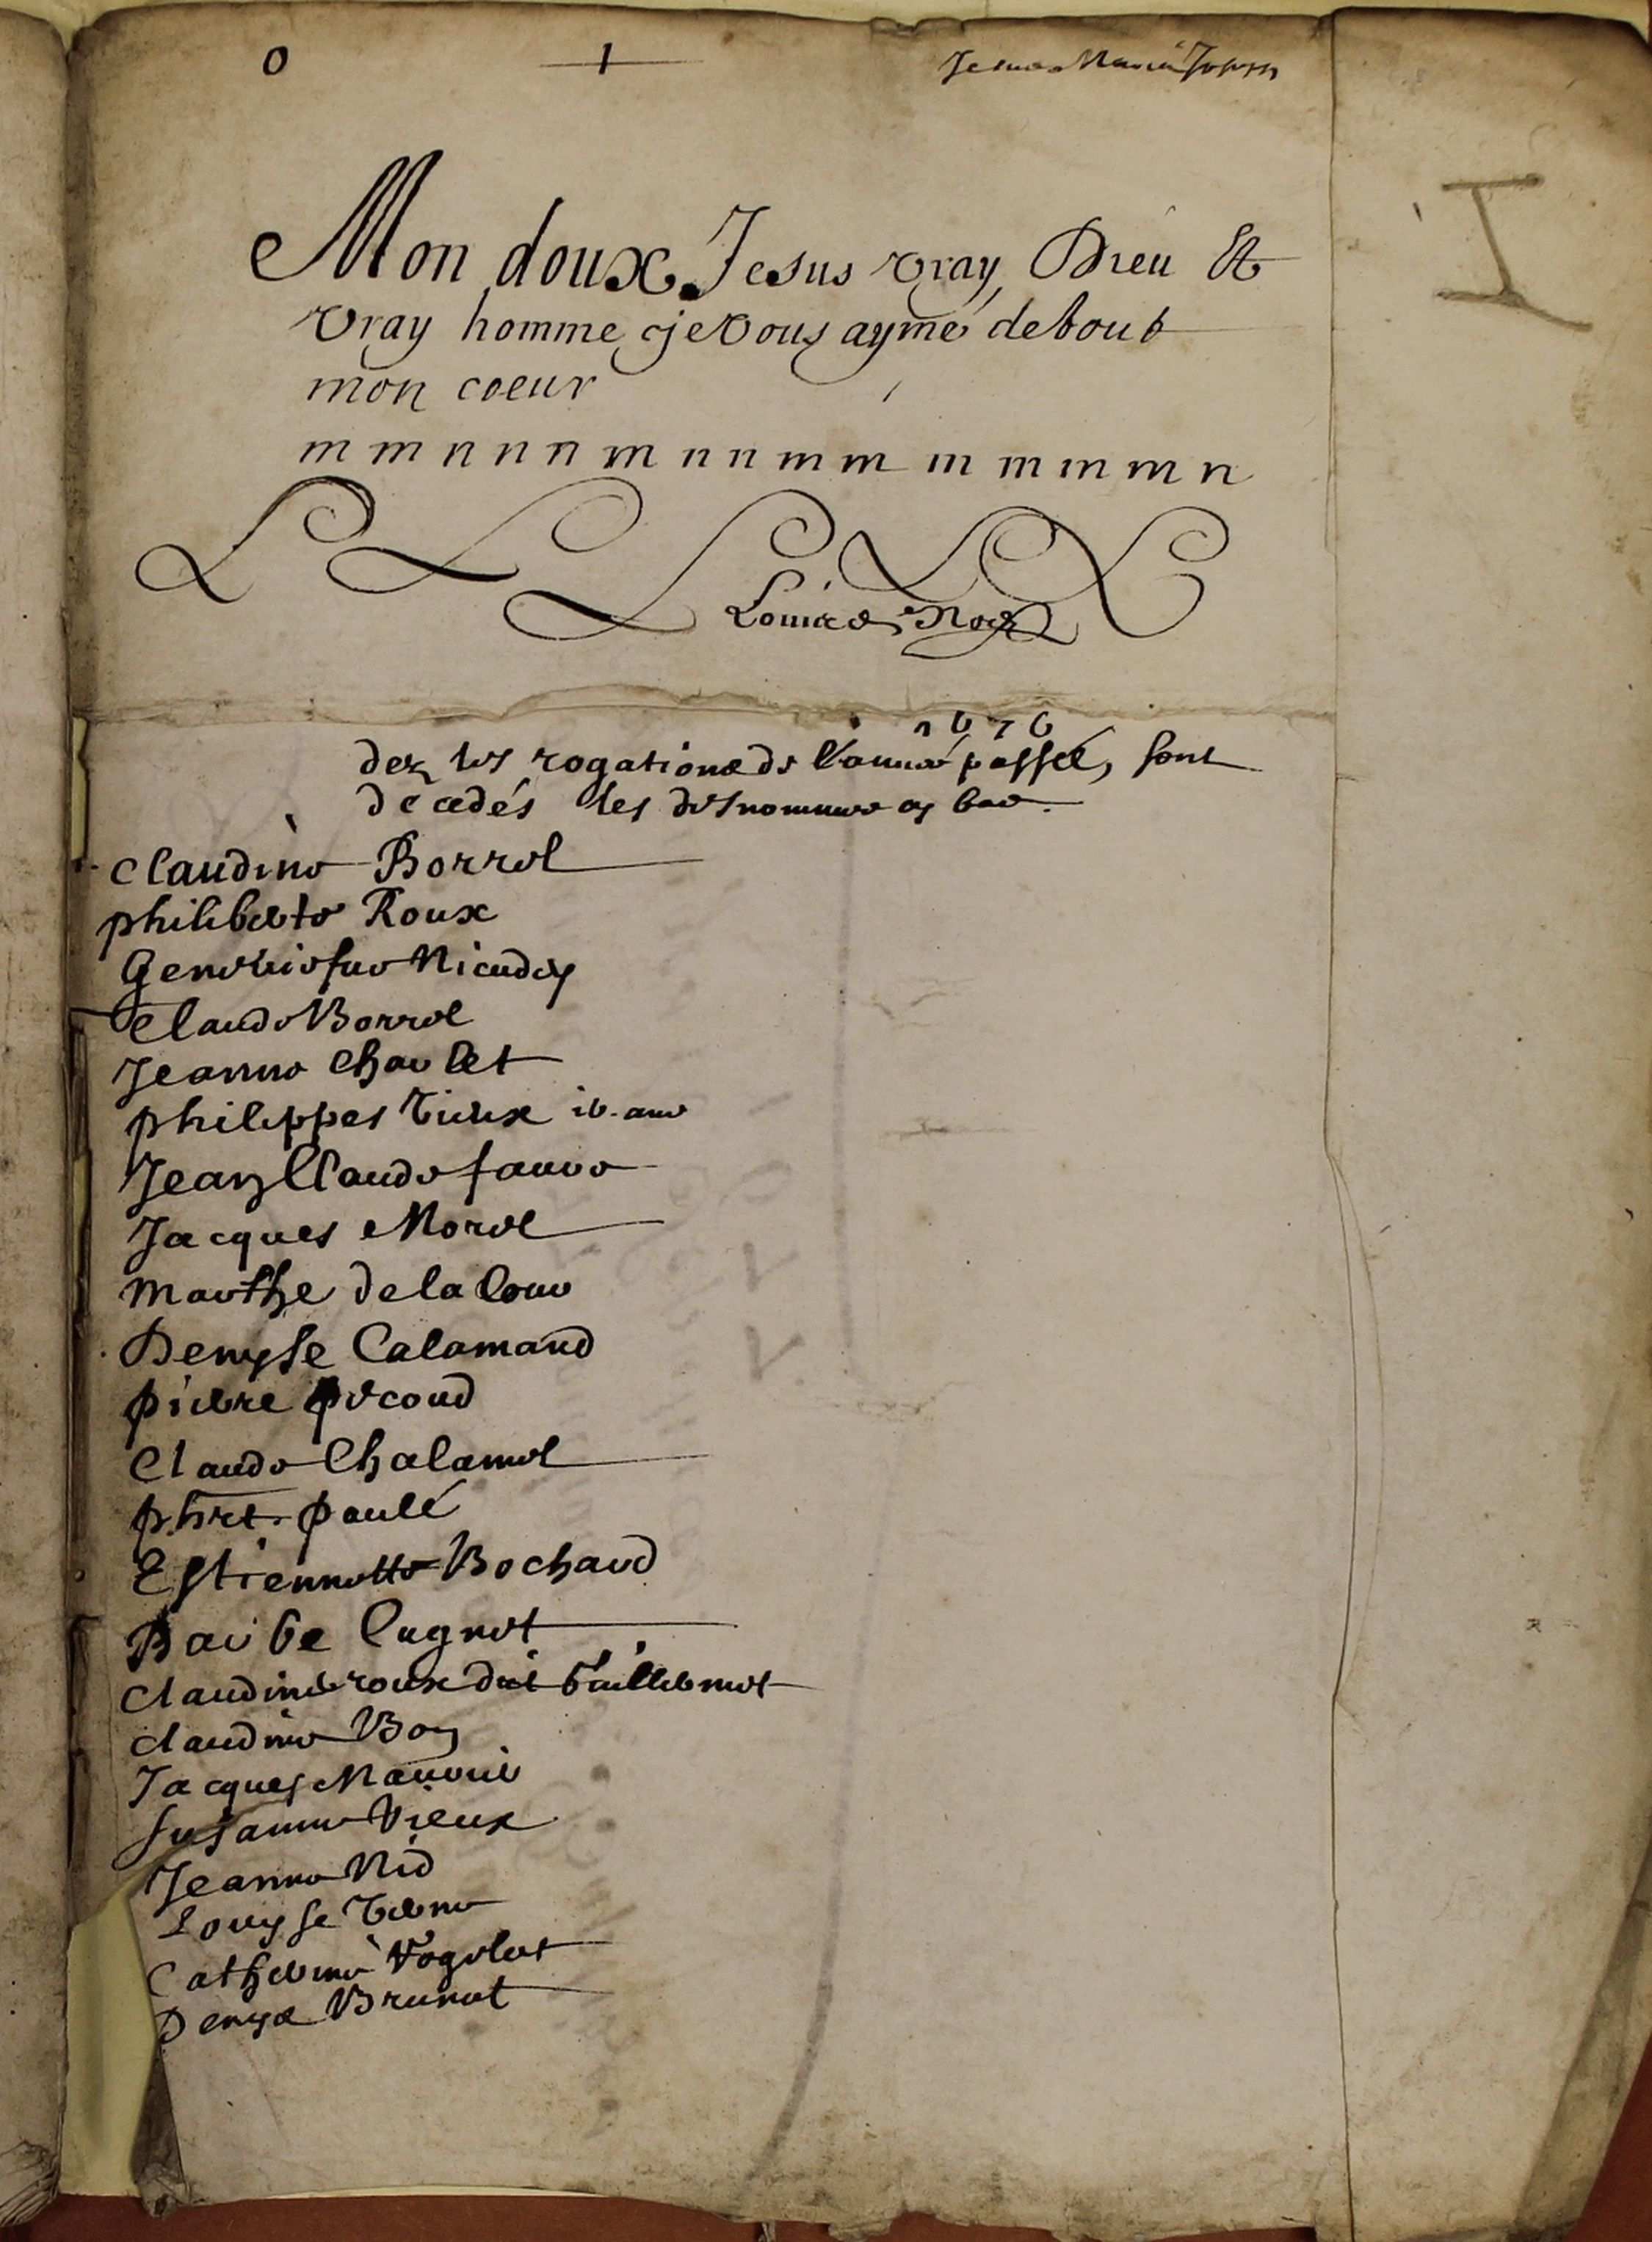 0 1 Jesus Maria Joseph
Mon doux Jesus vray Dieu Et
vray homme je vous ayme de tout
mon coeur
m m n n n m n n m m m m m m n
L L L L L
Louise Noel
1676
dez les rogations de l'année passeé, sont
decedés les desnommes cy bas.
Claudine Borrel
philiberte Roux
Geneviefve Nicudey
Claude Borrel
Jeanne Chavlet
philippes vieux
Jean Claude favre
Jacques Morel
Marthe de la
Denyse Calamand
pierre pecoud
Claude Chalamel
phret. paulé
Estiennette Bochard
Barbe Cugnet
Claudine roux dit
claudine Boy
Jacques
Susanne Vieux
Jeanne Nid
Louyse
Catherine Vogelet
Denyse Brunet
I